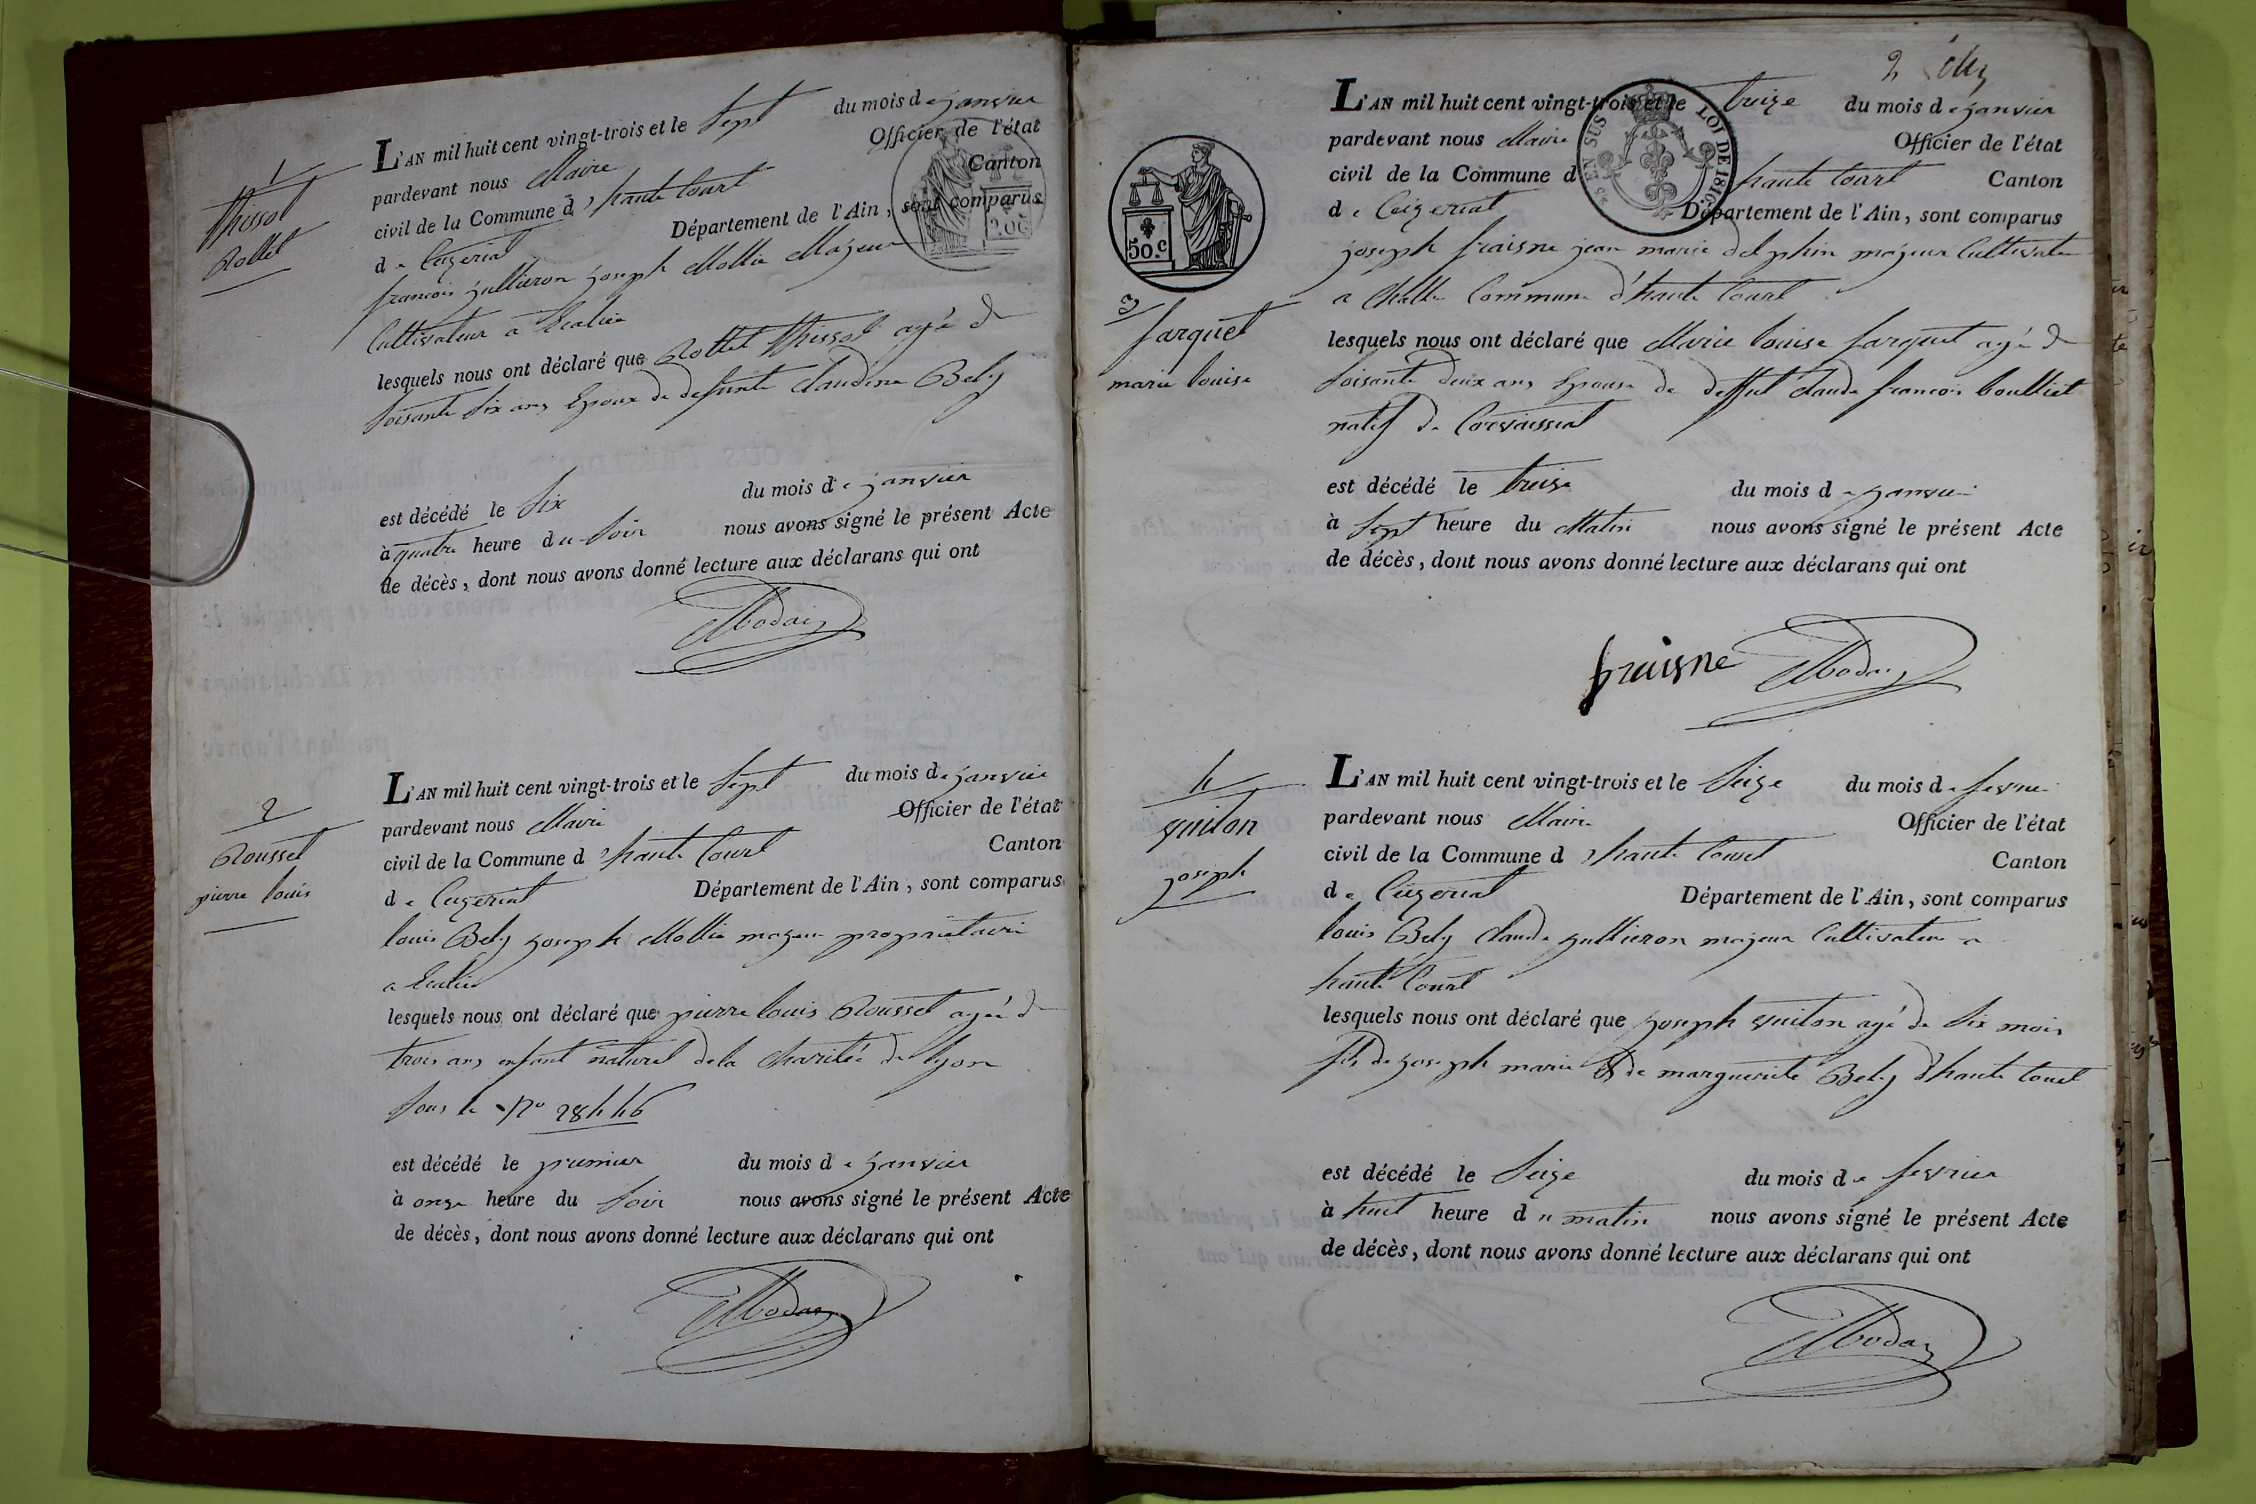 1
Thissot
Rollet
L'AN mil huit cent vingt-trois et le Sept du mois de janvier
pardevant nous Maire Officier de l'état
civil de la Commune d'haute Court Canton
de Ceyzeriat Département de l'Ain, sont comparus
francois jullieron joseph Mollie Majeur
Cultivateur a
lesquels nous ont déclaré que Rollet Thissot agé de
Soisante Six ans Epoux de defunte Claudine Bely
est décédé le Six du mois de janvier
à quatre heure du Soir nous avons signé le présent Acte
de décès, dont nous avons donné lecture aux déclarans qui ont
2
Rousset
pierre louis
L'AN mil huit cent vingt-trois et le Sept du mois de janvier
pardevant nous Maire Officier de l'état
civil de la Commune d'haute Court Canton
de Ceyzeriat Département de l'Ain, sont comparus
louis Bely joseph Mollie majeur propriétaire
a
lesquels nous ont déclaré que pierre louis Rousset agé de
trois ans enfant naturel de la Charitée de lyon
Sous le No 28446
est décédé le premier du mois de janvier
à onze heure du Soir nous avons signé le présent Acte
de décès, dont nous avons donné lecture aux déclarans qui ont
2
50.c
EN SUS
LOI DE 1816
3
farquet
marie louise
L'AN mil huit cent vingt-trois et le treize du mois de janvier
pardevant nous Maire Officier de l'état
civil de la Commune d'haute Court Canton
de Ceyzeriat Département de l'Ain, sont comparus
joseph fraisne jean marie delphin majeur Cultivateur
a Challe Commune d'haute Court
lesquels nous ont déclaré que Marie louise farquet agé de
Soisante deux ans Epouse de deffut Claude francois
natif de
est décédé le treize du mois de janvier
à Sept heure du Matin nous avons signé le présent Acte
de décès, dont nous avons donné lecture aux déclarans qui ont
fraisne
4
guiton
joseph
L'AN mil huit cent vingt-trois et le Seize du mois de fevrier
pardevant nous Maire Officier de l'état
civil de la Commune d'haute Court Canton
de Ceyzeriat Département de l'Ain, sont comparus
louis Bely Claude jullieron majeur Cultivateur a
haute Court
lesquels nous ont déclaré que joseph guiton agé de Six mois
fils de joseph marie & de marguerite Bely d'haute Court
est décédé le Seize du mois de fevrier
à huit heure du matin nous avons signé le présent Acte
de décès, dont nous avons donné lecture aux déclarans qui ont